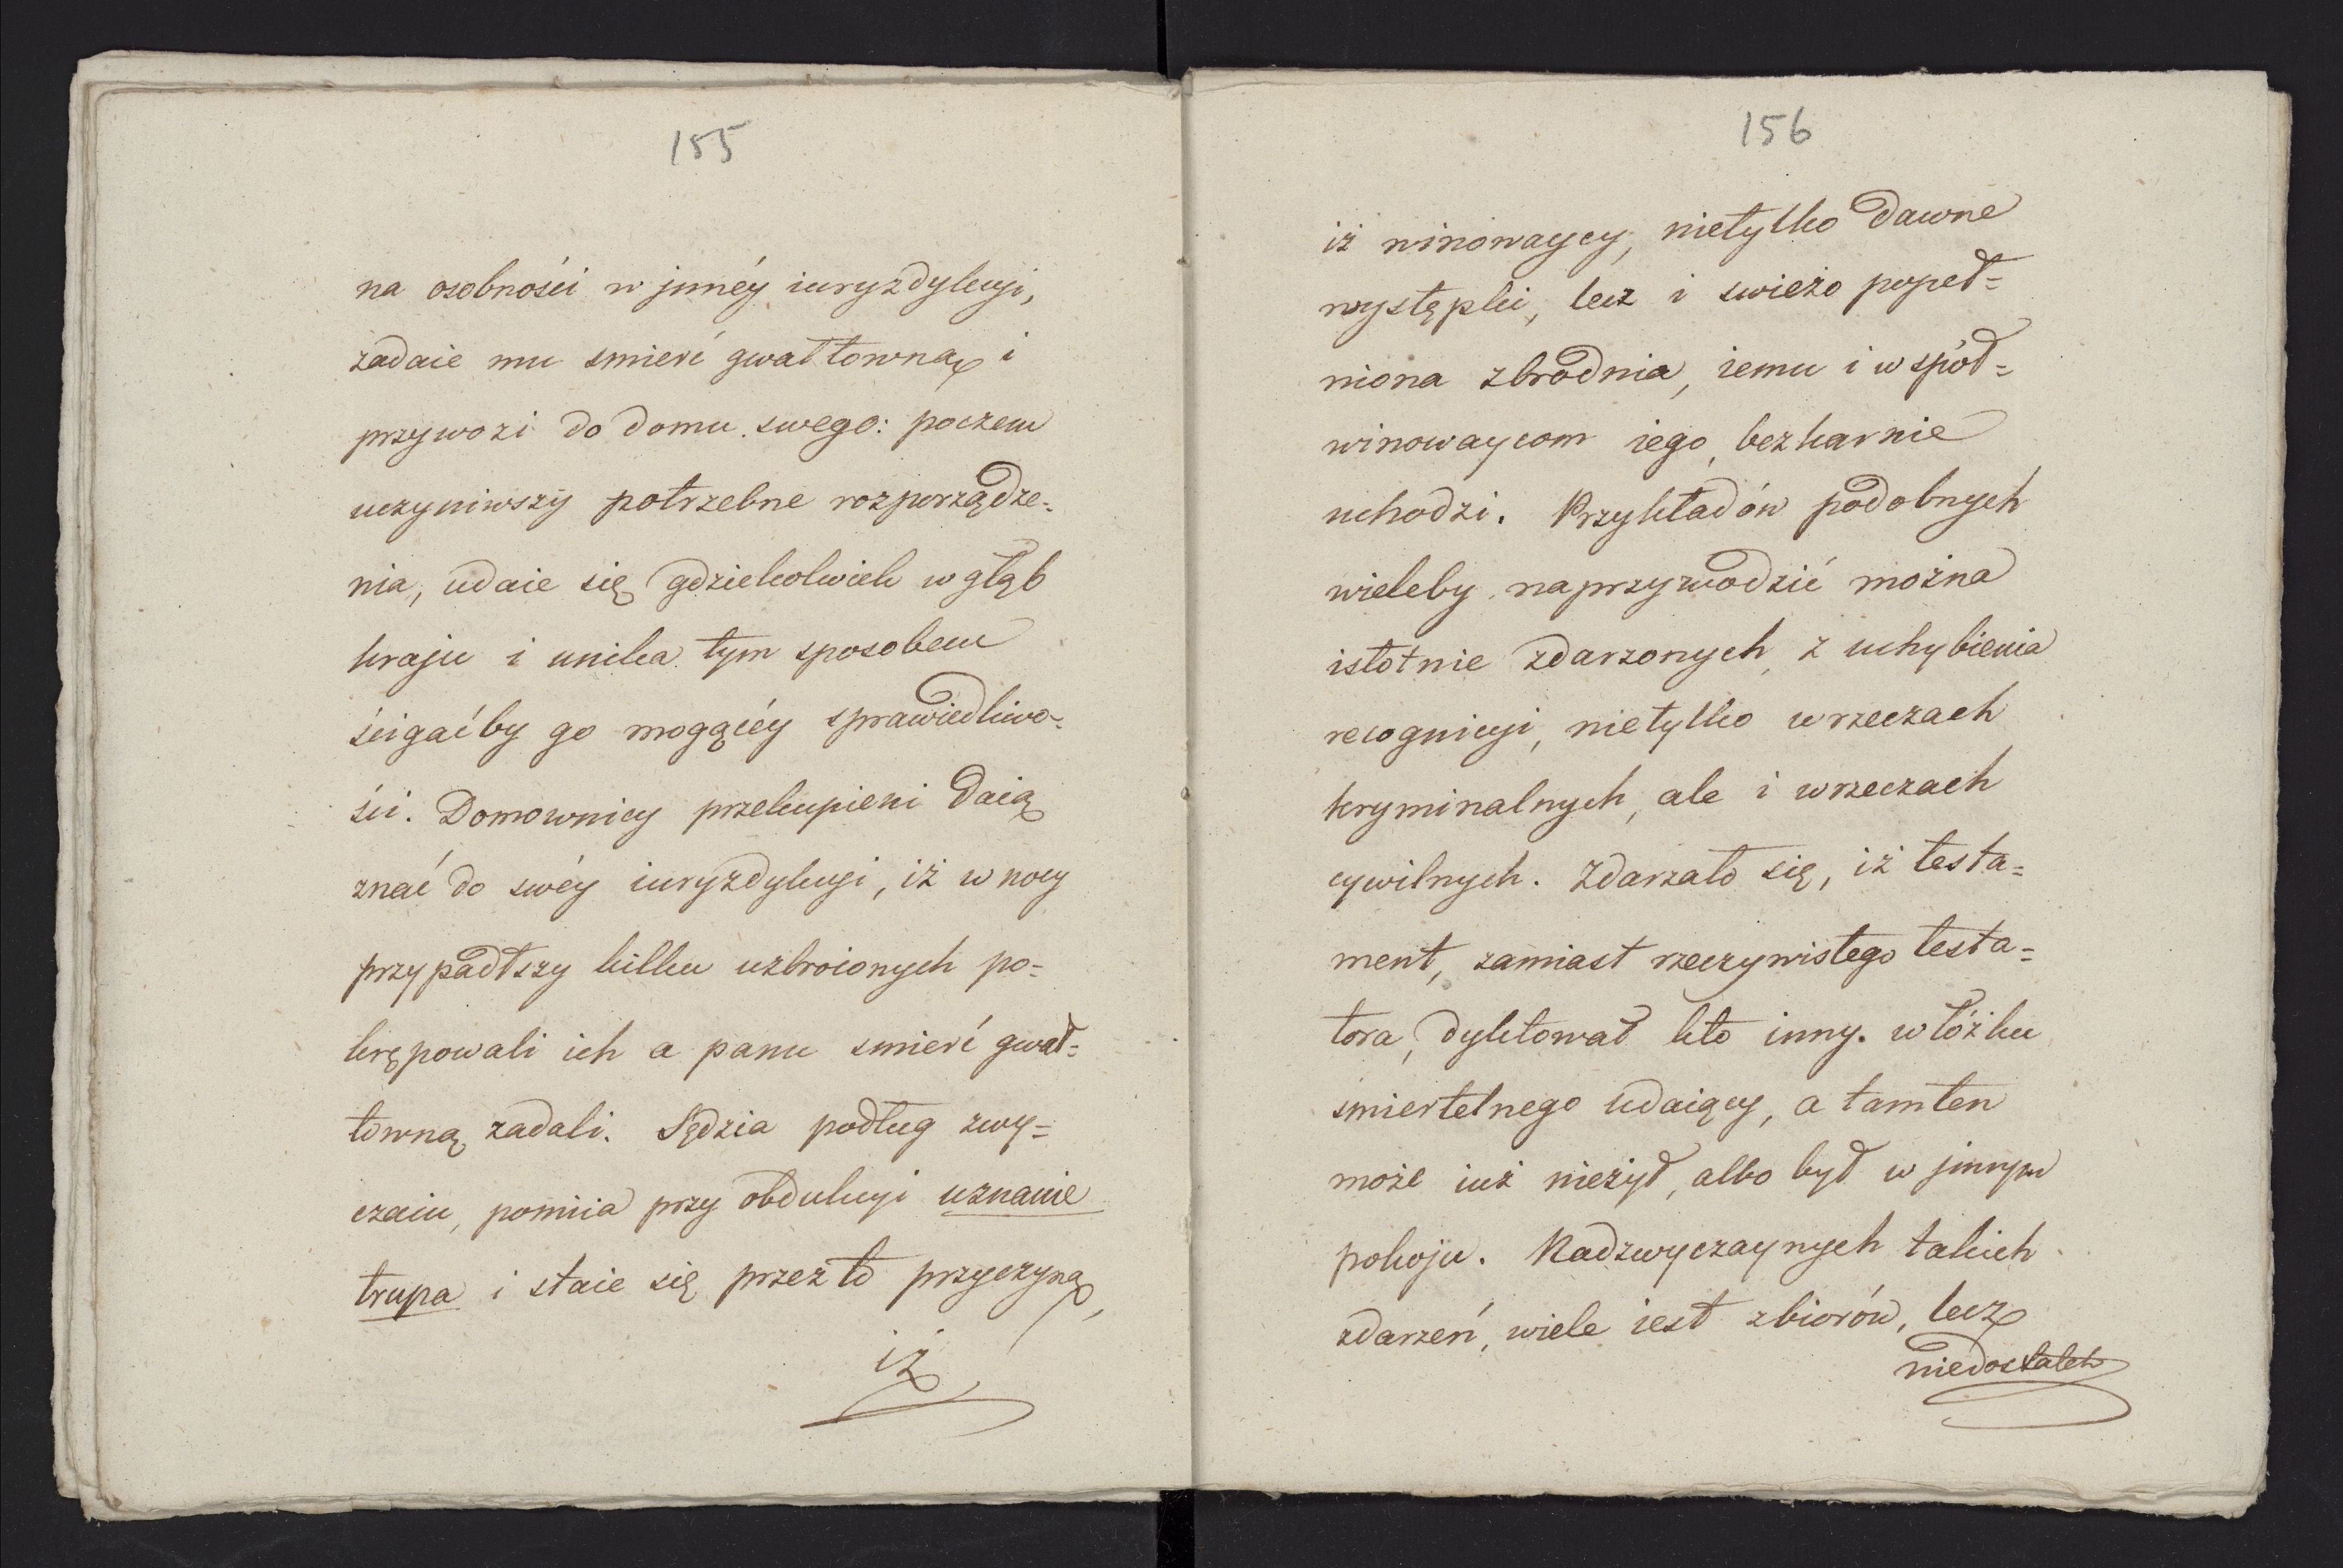 155
na osobności w jnnéy iuryzdykcyi,
zadaie mu smierć gwałtowną i
przywozi do domu swego: poczem
uczyniwszy potrzebne rozporządze=
nia, udaie się gdziekolwiek w głąb
kraju i unika tym sposobem
ścigać by go mogącéy sprawiedliwo-
ści. Domownicy przekupieni daią
znać do swéy iuryzdykcyi, iż w nocy
przypadłszy kilku uzbroionych po=
krępowali ich a panu smierć gwał=
towną zadali. Sędzia podług zwy=
czaiu, pomiia przy obdukcyi uznanie
trupa i staie się przez to przyczyną,
iż
156
iż winowaycy, nietylko dawne
występki, lecz i swieżo popeł=
niona zbrodnia, iemu i współ=
winowaycom iego, bezkarnie
uchodzi. Przykładów podobnych
wieleby naprzywodzić można
istotnie zdarzonych, z uchybienia
recognicyi, nietylko w rzeczach
kryminalnych, ale i w rzeczach
cywilnych. Zdarzało się, iż testa=
ment, zamiast rzeczywistego testa=
tora, dyktował kto inny. w łóżku
smiertelnego udaiący, a tamten
może iuż nieżył, albo był w jnnym
pokoju. Nadzwyczaynych takich
zdarzeń, wiele iest zbiorów, lecz
niedostatek